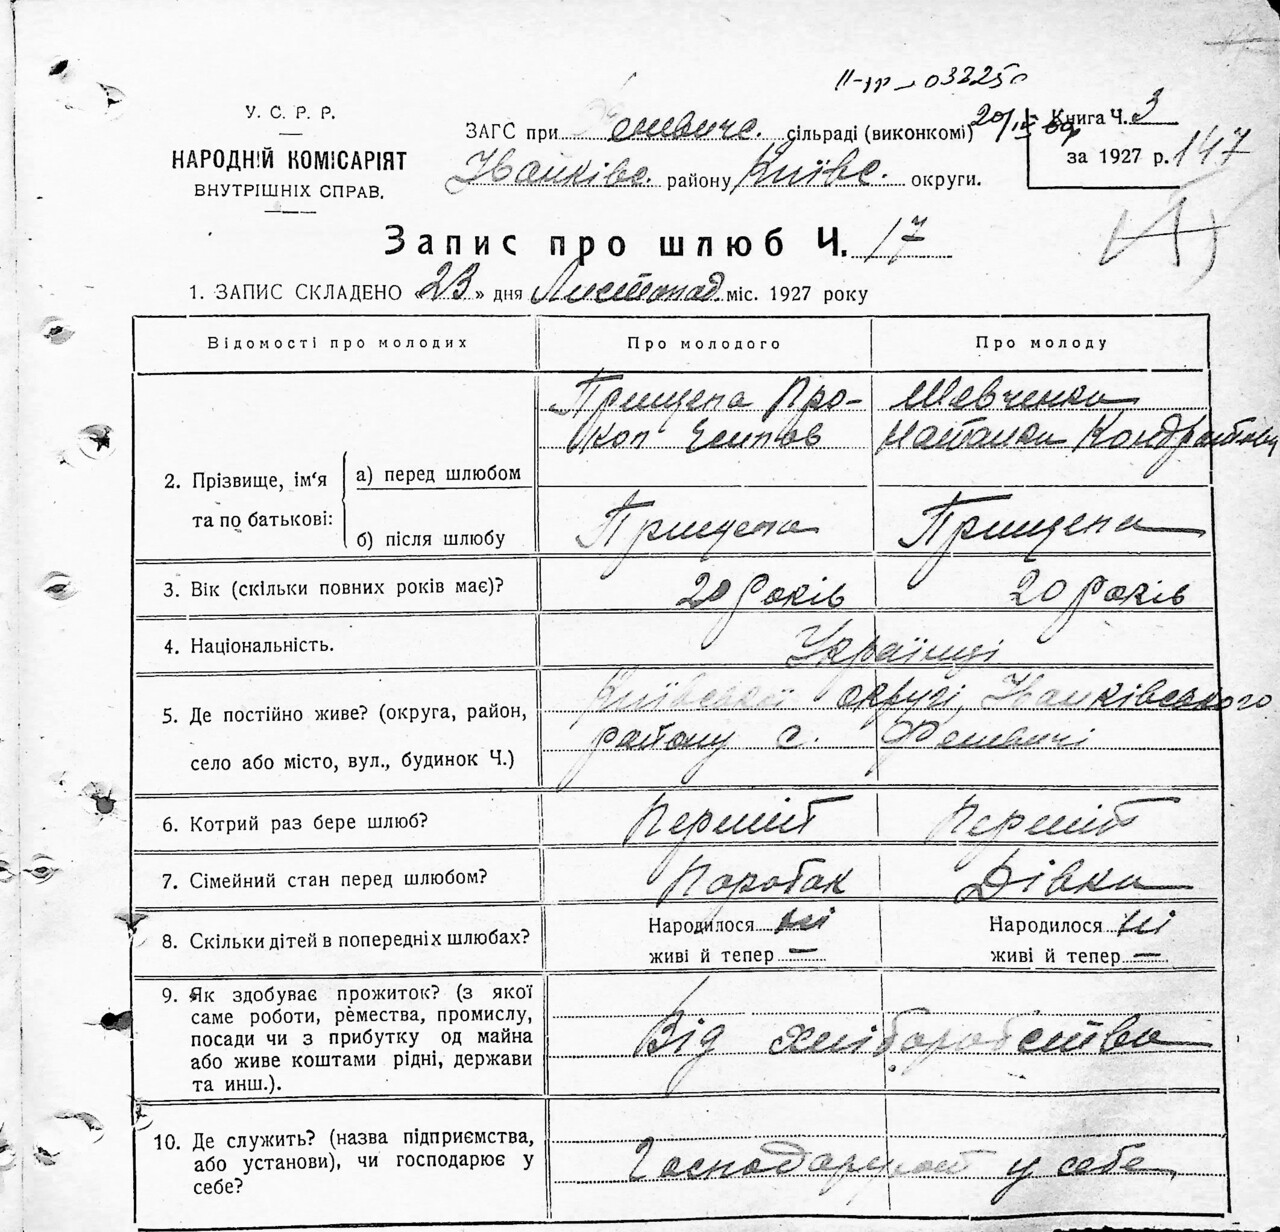 У. С. Р. Р.
НАРОДНІЙ КОМІСАРІЯТ
ВНУТРІШНІХ СПРАВ.
ЗАГС при сільраді (виконкомі)
Іванківс. району Київс. округи.
Книга Ч. 3
за 1927 р. 147
Запис про шлюб Ч. 17
1. ЗАПИС СКЛАДЕНО «23» дня Листопад міс. 1927 року
Відомості про молодих Про молодого Про молоду
2. Прізвище, ім‘я та по батькові:
а) перед шлюбом
Прищепа Про-
коп Есипов
Шевченко
Наталка Кондратова
б) після шлюбу Прищепа Прищепа
3. Вік (скільки повних років має)? 20 років 20 років
4. Національність. Українці
5. Де постійно живе? (округа, район,
село або місто, вул., будинок Ч.)
Київської округі, Іванківського
району с. Феневичі
6. Котрий раз бере шлюб? Перший Перший
7. Сімейний стан перед шлюбом? Паробок Дівка
8. Скільки дітей в попередніх шлюбах?
Народилося ні Народилося ні
живі й тепер — живі й тепер —
9. Як здобуває прожиток? (з якої
саме роботи, ремества, промислу,
посади чи з прибутку од майна
або живе коштами рідні, держави
та инш.).
Від хліборобства
10. Де служить? (назва підприємства,
або установи), чи господарює у
себе?
Господарують у себе